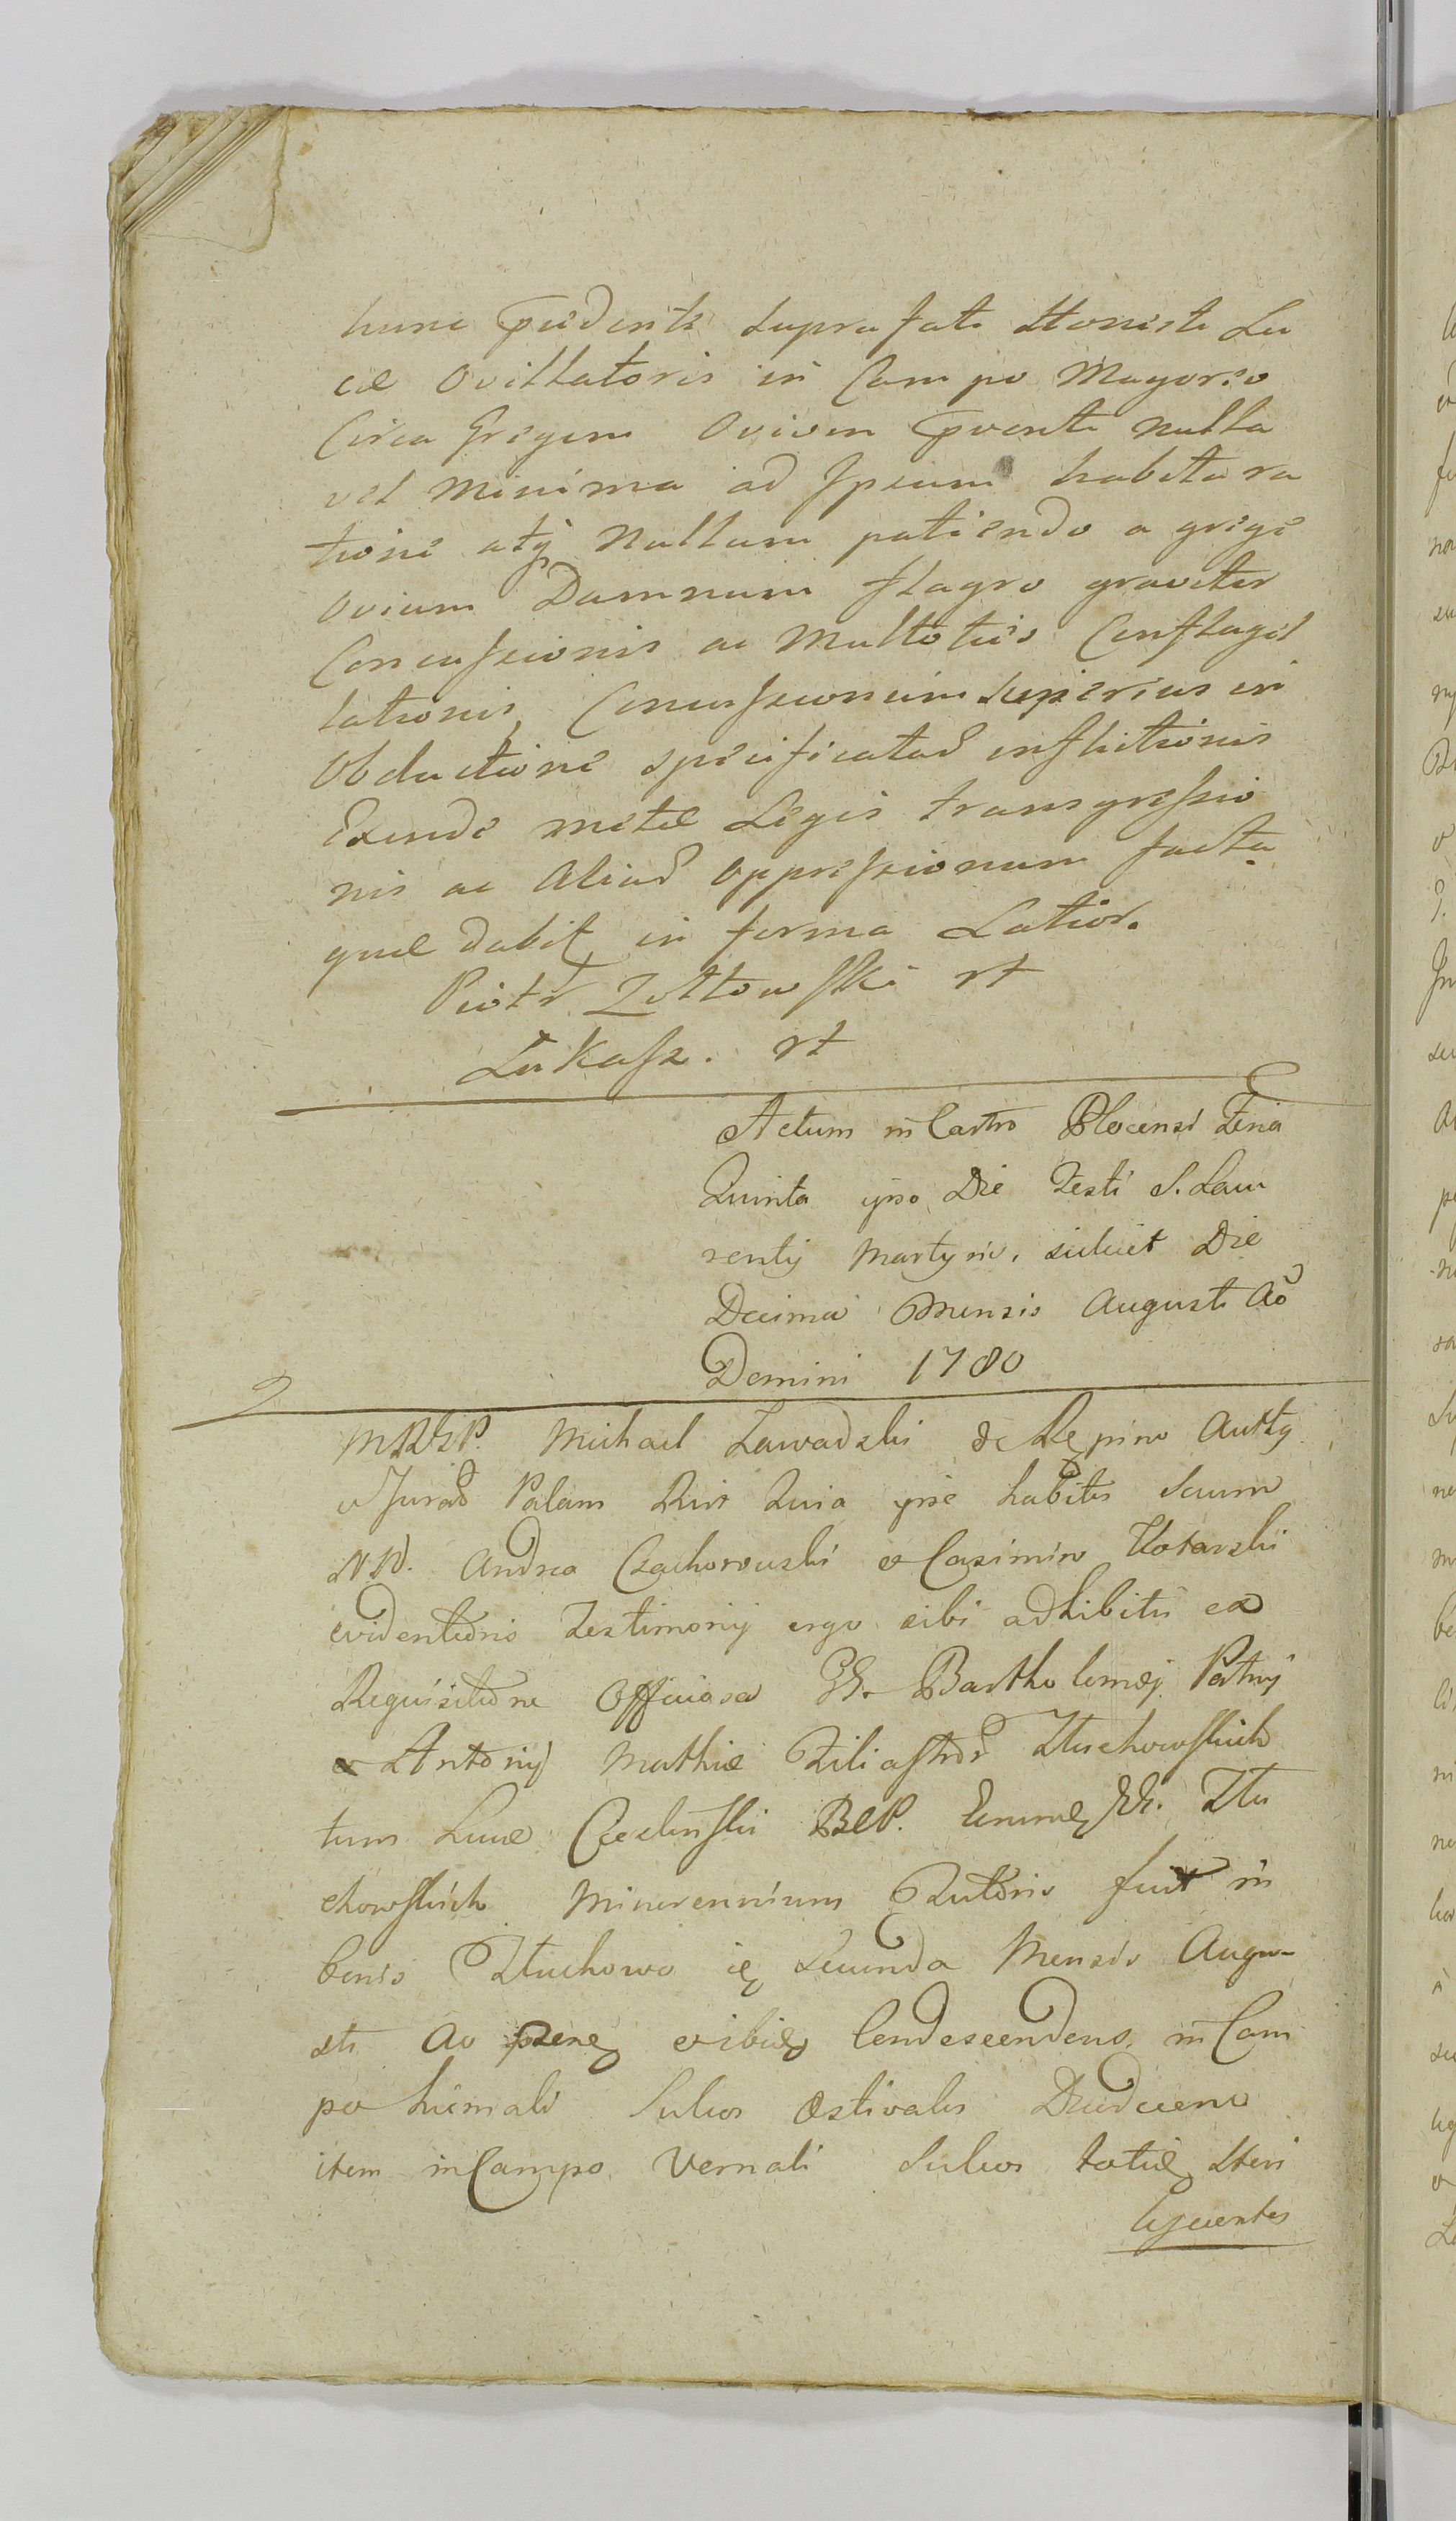 hunc Pridente suprafati Honesti Lu
cæ Ovillatoris in Campo Mayorso
Circa Gregem Ovium Pventi nulla
vel minima ad Ipsum habita ra
tione atq nullum patiendo a grege
ovium Damnum flagro graviter
Concussionis ac Multoties Conflagel
lationis, Concussionum superius in
Obductione specificatar inflictionis
Exinde metæ Legis transgressio
nis ac aliar oppressionum facta
quæ dabit in forma Latior.
Piotr Zołtowski rt
Łukasz. rt
Actum in Castro Plocensi Feria
Quinta ipso Die Festi S. Lau
rentij Martyris, scilicet Die
Decima Mensis Augusti Ao
Domini 1780
2
Michael Zawadzki de Rępino Autty
et Jurad Palam Quia ipse habitis Secum
NN. Andrea Czachorowski et Casimiro Kotarski
evidentioris Testimonij ergo sibi adhibitis ex
Requisitione Officiosa GG. Bartholomej Patruj
et Antonij Mathiæ Filiastror Tłuchowskich
tum Lucæ Czedinski
chowskich Minorennium Tutoris fuit in
bonis Tłuchowo ię Secunda Mensis Augu-
sti Ao et ibidę Condescendens, in Cam
po hiemali Sulcos Æstivales
item in Campo Vernali Sulcos totię